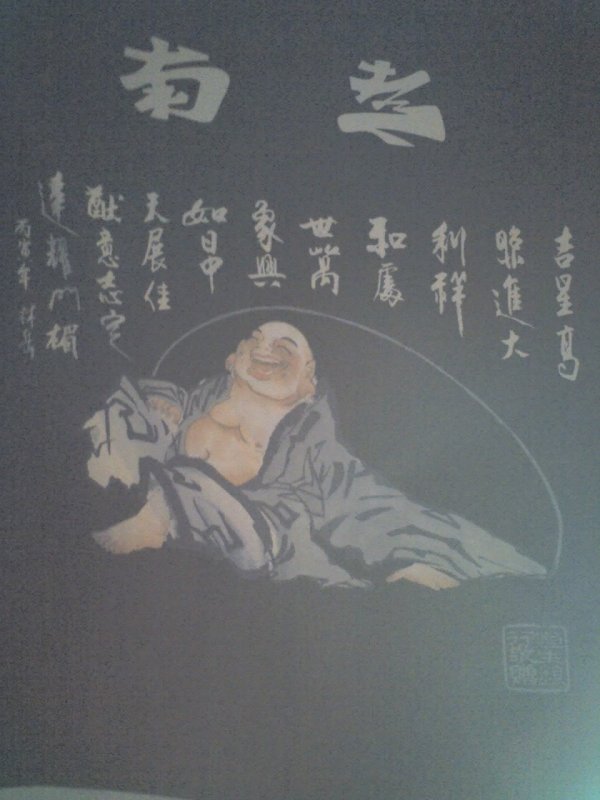 吉星高
照進大
利祥
和處
世萬
象興
如日中
天展佳
猷意志定
達耀門楣
丙寅年